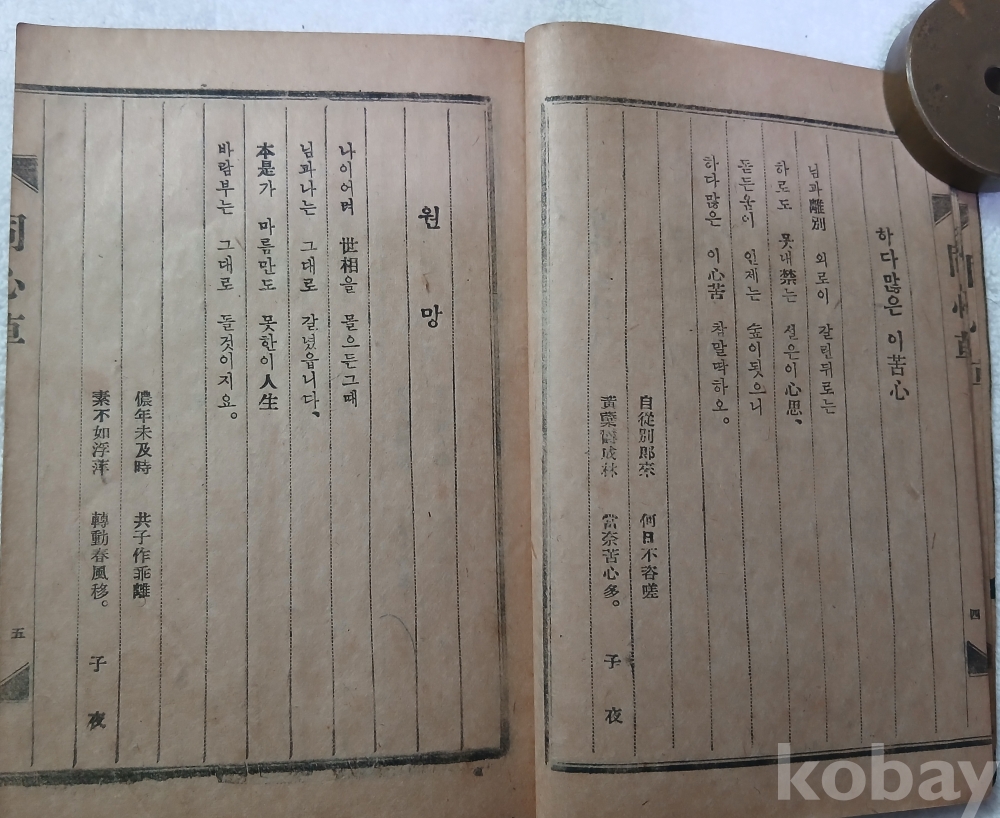 四
하다많은 이苦心
님과離別 외로이 갈린뒤로는
하로도 못내禁는 설은이心思、
돋든움이 인제는 숲이됫으니
하다많은 이心苦 참말딱하오。
自從別郎來 何日不咨嗟
黃蘗鬱成林 當奈苦心多。
子夜
원망
나이어려 世相을 몰으든그때
님과나는 그대로 갈녔읍니다、
本是가 마름만도 못한이人生
바람부는 그대로 돌것이지요。
儂年未及時 共子作乖離
素不如浮萍 轉動春風移。
子夜
同心草
五
kobay